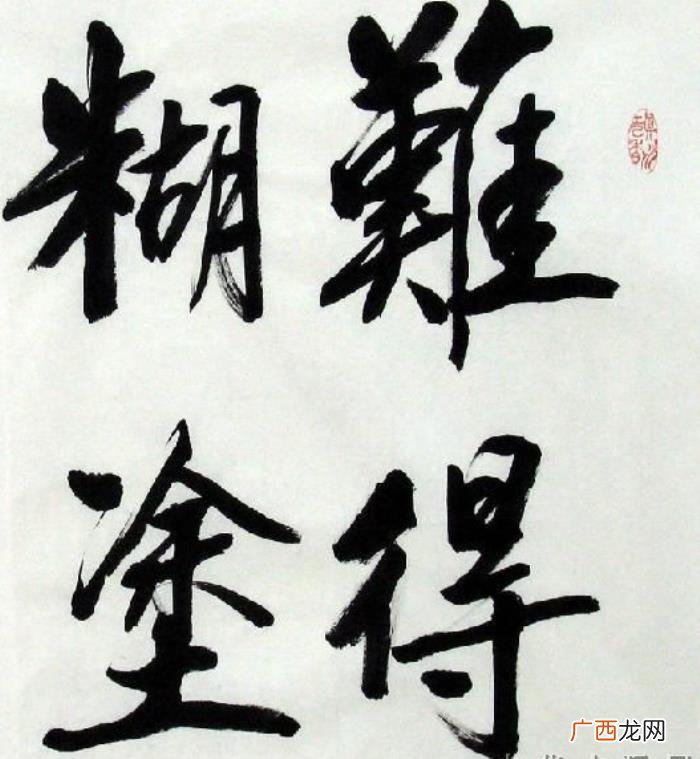 難得
糊塗
广西龙网